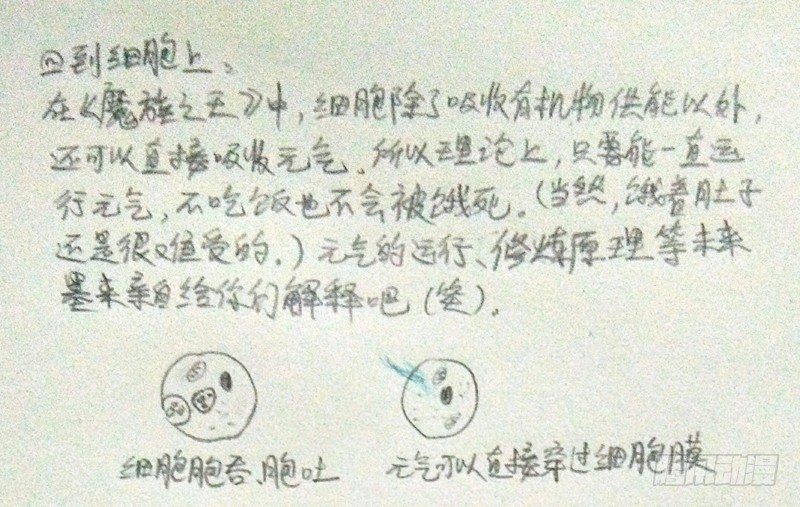 回到细胞上。
在《魔族之王》中，细胞除了吸收有机物供能以外，
还可以直接吸收元气。所以理论上，只要能一直运
行元气，不吃饭也不会被饿死。（当然，饿着肚子
还是很难受的。）元气的运行、修炼原理等未来
墨来亲自给你们解释吧（笑）。
细胞胞吞、胞吐
元气可以直接穿过细胞膜
腾讯动漫